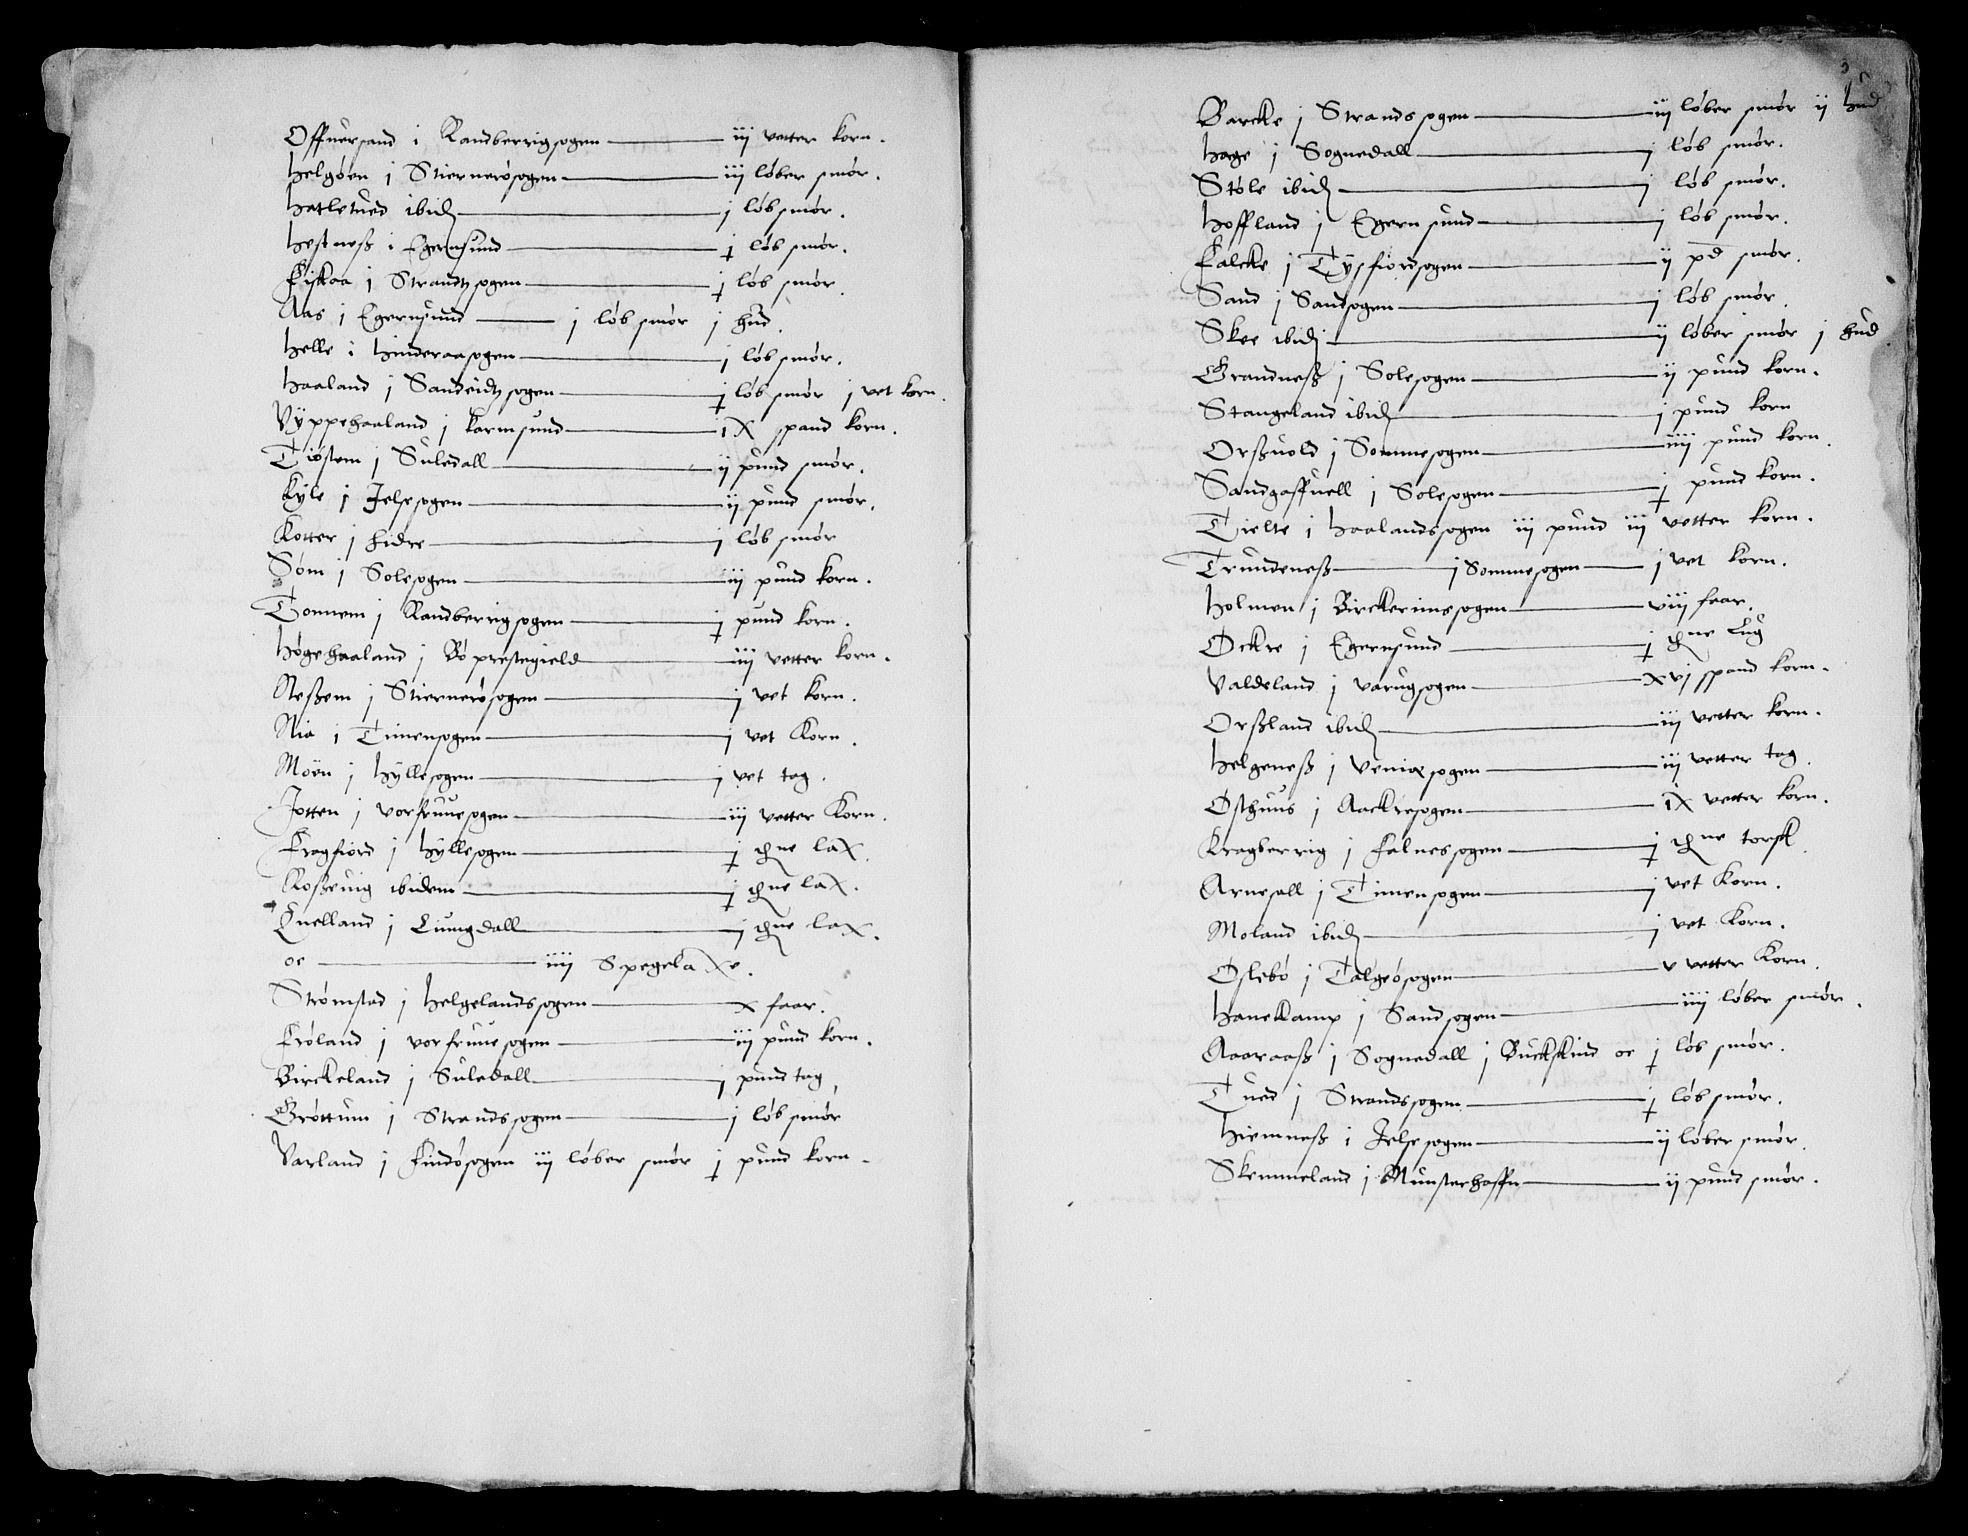 Offuersand i Randberrigsogen — iij vetter korn.
Helgøen j Stiernerøsogen — iij løber smør.
Hatletued ibid — j løb smør.
Hestneß i Egernsund — j løb smør.
Fiskaa j Strandtzsogen — j løb smør.
Aas j Egernsund — j løb smør j hud.
Helle i Hinderaasogen — j løb smør.
Haaland j Sandeidtzsogen — j løb smør j vet korn.
Vyppehaaland j Karmsund — ix spand korn.
Tiøstem j Suledall — ij pund smør.
Kyle j Jelsesogen — ij pund smør.
Kotter j Hidre — j løb smør
Søm j Solesogen — iij pund korn.
Tonnem j Randberrigsogen — j pund korn.
Høgehaaland j Bø prestegield — iiij vetter korn.
Neßem j Stiernerøsogen — j vet korn.
Nia i Timensogen — j vet Korn.
Moën j Hyllesogen — j vet tag.
Jotten j vorfruuesogen — iij vetter Korn.
Frogfiord j Hyllesogen — j thne lax.
Roßeuig ibidem — j thne lax.
Quelland j Liungdall — j thne lax.
oc — iiij Spegelaxe.
Strømstad j Helgelandssogen — x faar.
Frøland j vorfruuesogen — iij pund korn.
Birckeland j Suledall — j pund tag,
Grøttum j Strandssogen — j løb smør
Varland j Findøsogen iij løber smør j pund korn.
Barcke j Strandssogen — iij løber smør ij hud
Hage j Sognedall — j løb smør.
Støle ibid — j løb smør.
Hoffland j Egernsund — j løb smør.
Falcke j Tysfiordsogen — ij pd smør.
Sand j Sandsogen — j løb smør.
Skee ibid — ij løber smør j hud.
Grandneß j Solesogen — ij pund korn.
Stangeland ibid — j pund korn
Orßuold j Sommesogen — iiij pund korn.
Sandgaffuell j Solesogen — j pund korn.
Tielte i Haalandssogen iij pund iij vetter korn.
Trundeneß — j Sommesogen — j vet korn.
Holmen j Birckerimssogen — viij faar.
Ockre j Egernsund — j thne Lug
Valdeland j varugsogen — xvj spand korn.
Orßland ibid — iij vetter korn.
Helgeneß j sogen — iij vetter tag.
Østhuus j Aackresogen — ix vetter korn.
Kragberrig j Falnessogen — j thne torsk.
Arnesall j Timensogen — j vet Korn.
Moland ibid — j vet Korn.
Oslebø j Talgeøsogen — v vetter Korn.
Hanekamp j Sandsogen — iiij løber smør.
Aaaraaß j Sognedall j Buckskind oc j løb smør.
Tued j Strandssogen — j løb smør.
Hiemneß i Jelsesogen — ij løber smør.
Skemmeland j Munsterhaffn — ij pund smør.